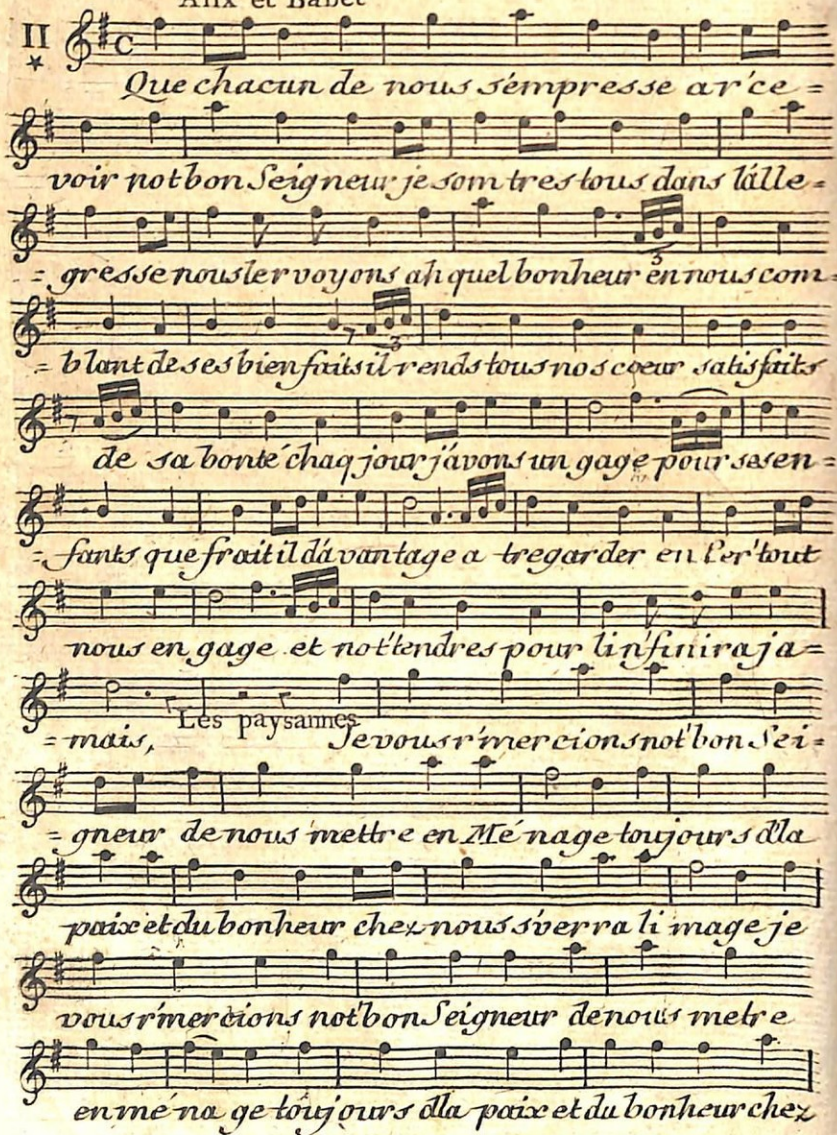 Alix et Babet
II
Que chacun de nous s'empresse a r'ce =
voir not bon Seigneur je som tres tous dans l'alle =
= gresse nous ler voyons ah quel bonheur en nous com =
3
= blant de ses bien faits il rends tous nos cœur satisfaits
3
de sa bonté chaq jour j'avons un gage pour ses en =
= fants que frait il d'avantage a tregarder en l'er tout
nous en gage et not' tendres pour li n'finira ja =
Les paysannes
= mais, Je vous r'mercions not' bon Sei =
= gneur de nous mettre en Mé nage toujours d'la
paix et du bonheur chez nous s'verra li mage je
vous r'mercions not' bon Seigneur de nous metre
en mé na ge toujours d'la paix et du bonheur chez